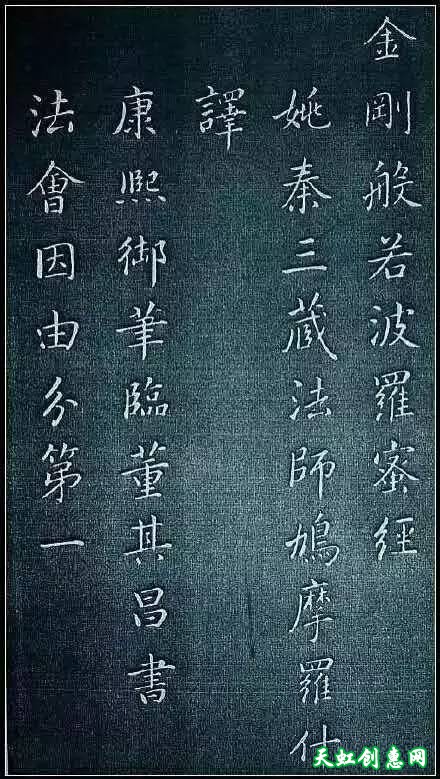 金剛般若波羅蜜經
姚秦三蔵法師鳩摩羅什
譯
康熙御筆臨董其昌書
法會因由分第一
天虹创意网